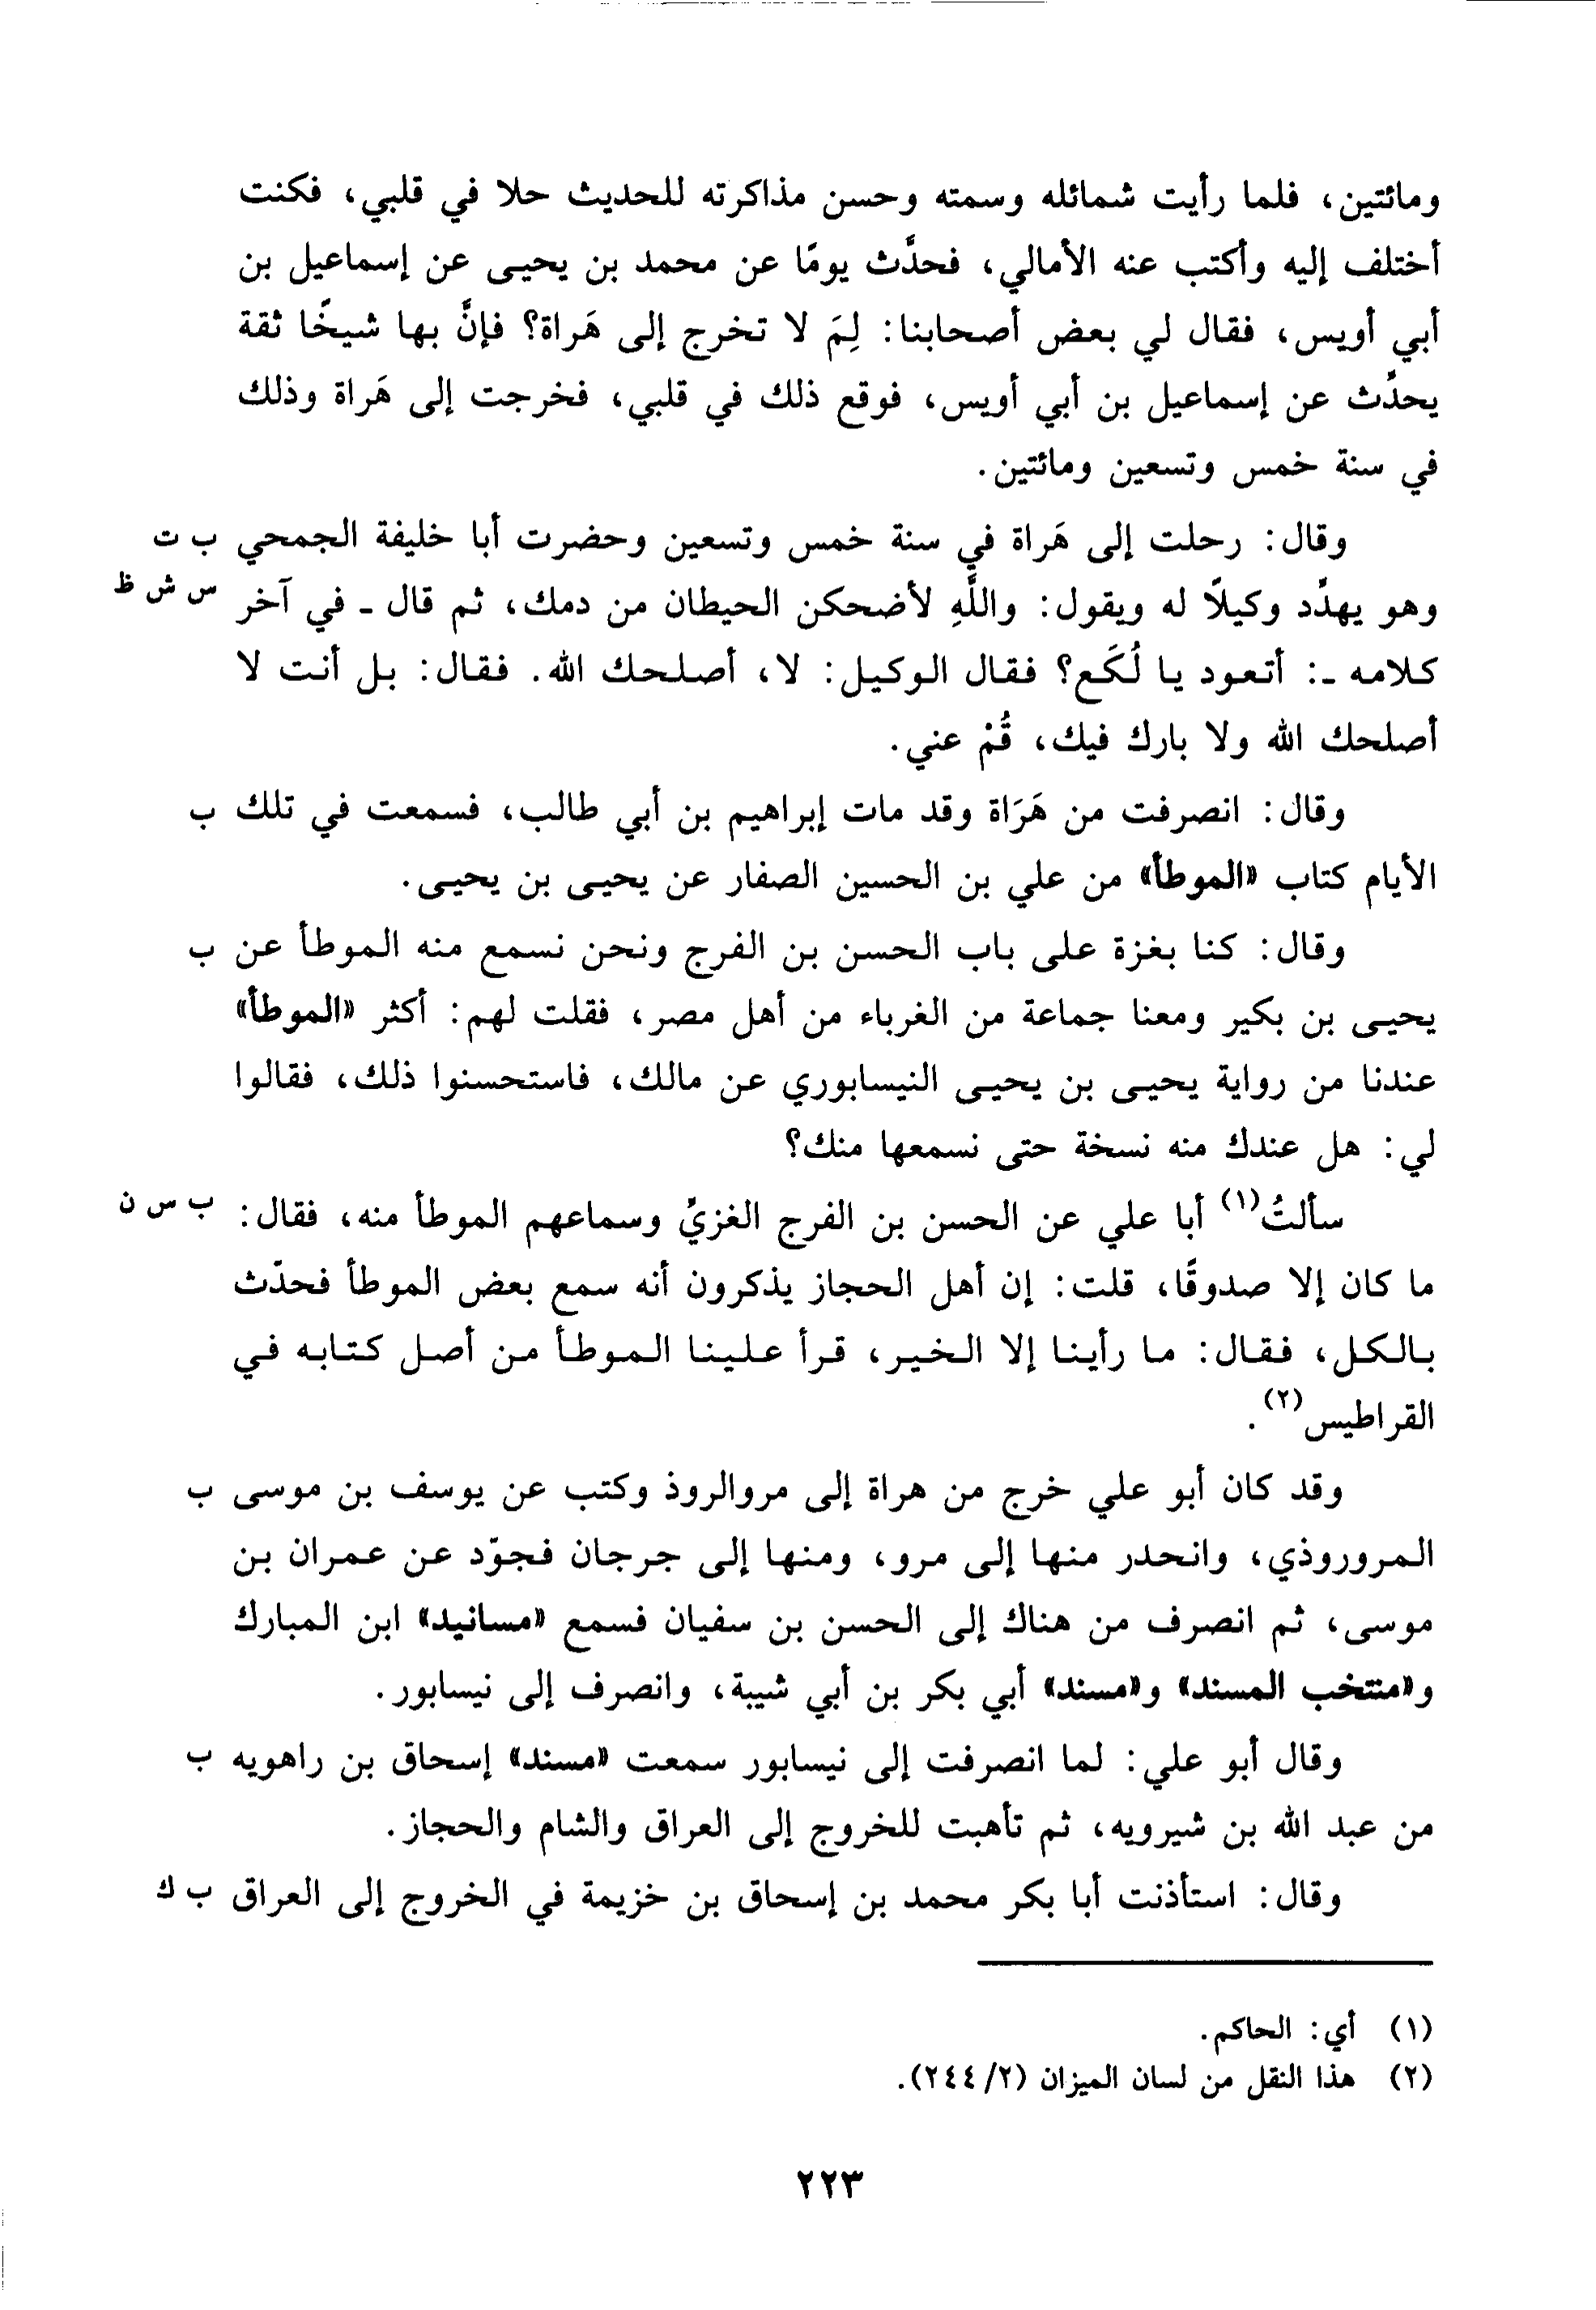 ومائتين، فلما رأيت شمائله وسمته وحسن مذاكرته للحديث حلا في قلبي، فكنت
أختلف إليه وأكتب عنه الأمالي، فحدَّث يومًا عن محمد بن يحيى عن إسماعيل بن
أبي أويس، فقال لي بعض أصحابنا: لِمَ لا تخرج إلى هَراة؟ فإنَّ بها شيخًا ثقة
يحدِّث عن إسماعيل بن أبي أويس، فوقع ذلك في قلبي، فخرجت إلى هَراة وذلك
في سنة خمس وتسعين ومائتين.
وقال: رحلت إلى هَراة في سنة خمس وتسعين وحضرت أبا خليفة الجمحي ب ت
وهو يهدِّد وكيلًا له ويقول: واللَّهِ لأضحكن الحيطان من دمك، ثم قال ـ في آخر س ش ظ
كلامه ـ: أتعود يا لُكَع؟ فقال الوكيل: لا، أصلحك الله. فقال: بل أنت لا
أصلحك الله ولا بارك فيك، قُمْ عني.
وقال: انصرفت من هَرَاة وقد مات إبراهيم بن أبي طالب، فسمعت في تلك ب
الأيام كتاب «الموطأ» من علي بن الحسين الصفار عن يحيى بن يحيى.
وقال: كنا بغزة على باب الحسن بن الفرج ونحن نسمع منه الموطأ عن ب
يحيى بن بكير ومعنا جماعة من الغرباء من أهل مصر، فقلت لهم: أكثر «الموطأ»
عندنا من رواية يحيى بن يحيى النيسابوري عن مالك، فاستحسنوا ذلك، فقالوا
لي: هل عندك منه نسخة حتى نسمعها منك؟
سألتُ(١) أبا علي عن الحسن بن الفرج الغزيِّ وسماعهم الموطأ منه، فقال: ب س ن
ما كان إلا صدوقًا، قلت: إن أهل الحجاز يذكرون أنه سمع بعض الموطأ فحدّث
بالكل، فقال: ما رأينا إلا الخير، قرأ علينا الموطأ من أصل كتابه في
القراطيس(٢).
وقد كان أبو علي خرج من هراة إلى مروالروذ وكتب عن يوسف بن موسى ب
المروروذي، وانحدر منها إلى مرو، ومنها إلى جرجان فجوّد عن عمران بن
موسى، ثم انصرف من هناك إلى الحسن بن سفيان فسمع «مسانيد» ابن المبارك
و«منتخب المسند» و«مسند» أبي بكر بن أبي شيبة، وانصرف إلى نيسابور.
وقال أبو علي: لما انصرفت إلى نيسابور سمعت «مسند» إسحاق بن راهويه ب
من عبد الله بن شيرويه، ثم تأهبت للخروج إلى العراق والشام والحجاز.
وقال: استأذنت أبا بكر محمد بن إسحاق بن خزيمة في الخروج إلى العراق ب ك
(١) أي: الحاكم.
(٢) هذا النقل من لسان الميزان (٢/ ٢٤٤).
٢٢٣